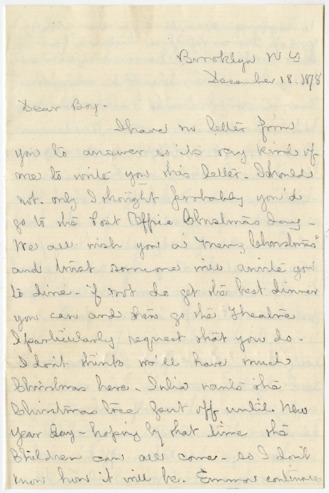 Brooklyn N Y
December 18. 1878
Dear Boy-
I have no letter from
you to answer so its very kind of
me to write you this letter. I should
not. only I thought probably you'd
go to the Post Office Christmas day-
We all wish you a "merry Christmas"
and trust someone will invite you
to dine - if not do get the best dinner
you can and then go the Theatre
I particularly request that you do.
I don't think we'll have much
Christmas here. Julia wants the
Christmas tree put off until New
Year day - hoping by that time the
Children can all come - so I don't
know how it will be. Emma continues